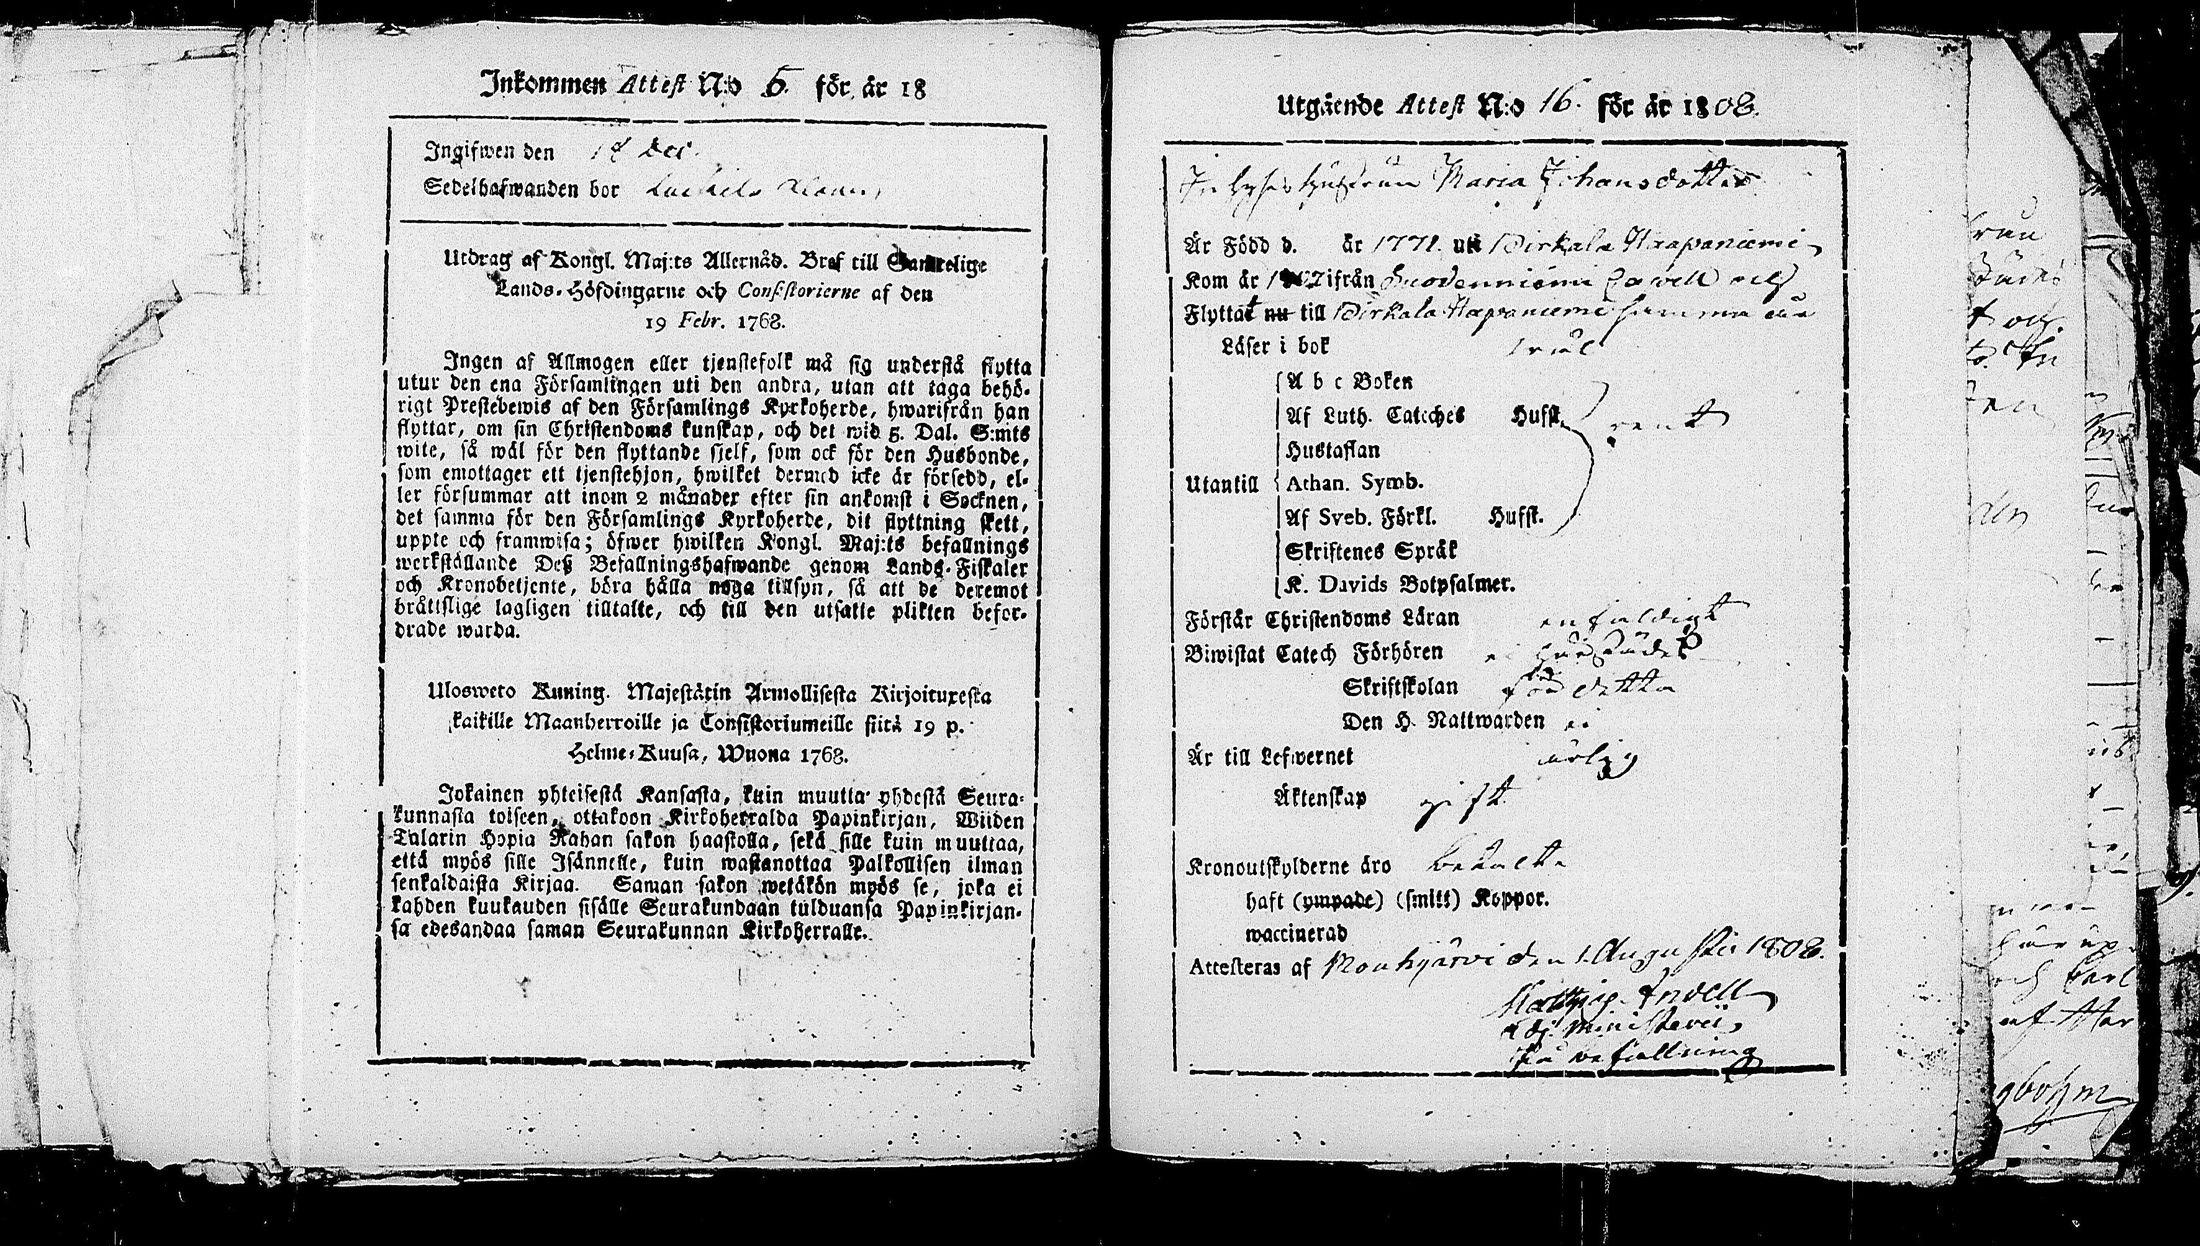 Inkommen Attest N:o 6. för år 18
Ingifwen den 18 Dec.
Sedelhafwanden bor
Utdrag af Kongl. Maj:ts Allernåd. Bref till Samtelige
Lands-Höfdingarne och Consistorierne af den
19 Febr. 1768.
Ingen af Allmogen eller tjenstefolk må sig understå flytta
utur den ena Församlingen uti den andra, utan att taga behö-
rigt Prestebewis af den Församlings Kyrkoherde, hwarifrån han
flyttar, om sin Christendoms kunskap, och det wid 5. Dal. S:mts
wite, så wäl för den flyttande sjelf, som ock för den Husbonde,
som emottager ett tjenstehjon, hwilket dermed icke är försedd, el-
ler försummar att inom 2 månader efter sin ankomst i Socknen,
det samma för den Församlings Kyrkoherde, dit flyttning skett,
uppte och framwisa; öfwer hwilken Kongl. Maj:ts befallnings
werkställande Deß Befallningshafwande genom Lands-Fiskaler
och Kronobetjente, böra hålla noga tillsyn, så att de deremot
bråttslige lagligen tilltalte, och till den utsatte plikten befor-
drade warda.
Ulosweto Kuning. Majestätin Armollisesta Kirjoituxesta
kaikille Maanherroille ja Consistoriumeille siitä 19 p.
Helme-Kuusa, Wuona 1768.
Jokainen yhteisestä Kansasta, kuin muutta yhdestä Seura-
kunnasta toiseen, ottakoon Kirkoherralda Papinkirjan, Wiiden
Talarin Hopia Rahan sakon haastolla, sekä sille kuin muuttaa,
että myös sille Isännelle, kuin wastanottaa Palkollisen ilman
senkaldaista Kirjaa. Saman sakon wetäkön myös se, joka ei
kahden kuukauden sisälle Seurakundaan tulduansa Papinkirjan-
sa edesandaa saman Seurakunnan Kirkoherralle.
Utgående Attest N:o 16. för år 1808.
Inhyses hustrun Maria Johansdotter
Är Född d. år 1771. uti Birkala Haapaniemi
Kom år ifrån Suodenniemi
Flyttat nu till Birkala Haapaniemi samma
Läser i bok
A b c Boken
Af Luth. Cateches Hufst.
rent
Hustaflan
Utantill Athan. Symb.
Af Sveb. Förkl. Hufst.
Skriftenes Språk
K. Davids Botpsalmer.
Förstår Christendoms Läran enfaldigt
Biwistat Catech Förhören ei härstädes
Skriftskolan för detta
Den H. Nattwarden ei
Är till Lefwernet ärlig
Äktenskap gift
Kronoutskylderne äro betalte
haft (ympade) (smitt) Koppor.
waccinerad
Attesteras af Mouhijärvi den 1. Augustii 1808.
Matthias Indell
adj. Ministerii,
på befallning